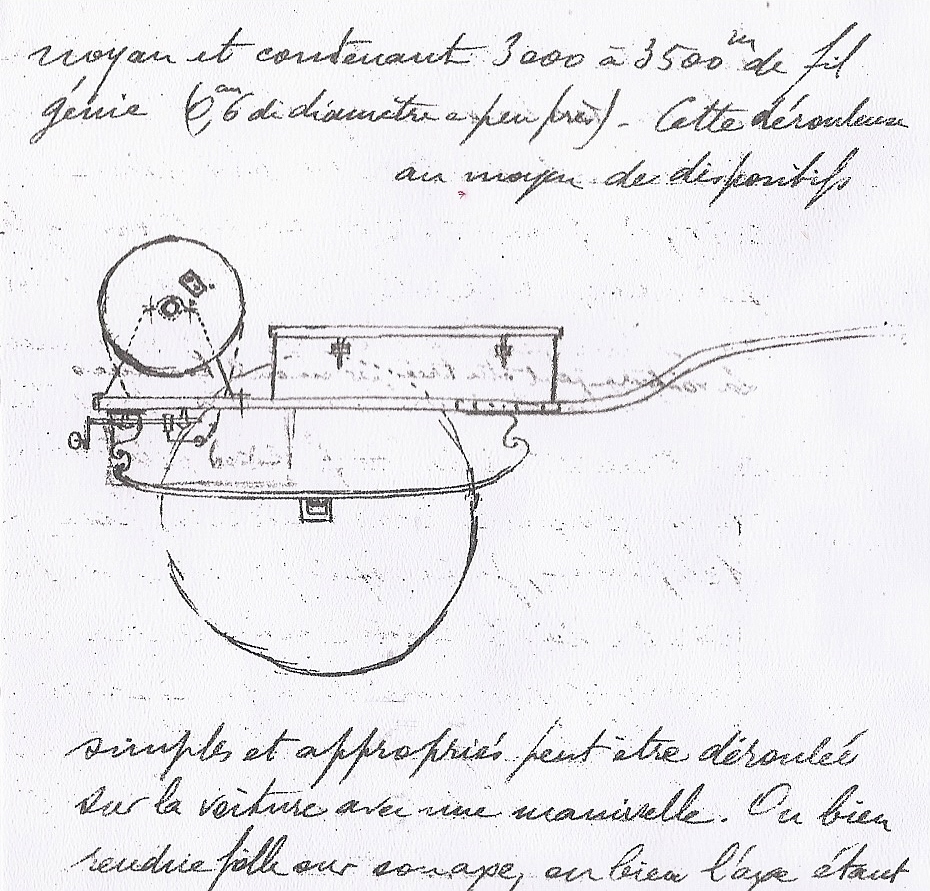 noyau et contenant 3000 à 3500m de fil
génie (0,m6 de diamètre a peu près) - Cette dérouleuse
au moyen de dispositifs
simples et appropriés peut être déroulée
sur la voiture avec une manivelle. Ou bien
rendue folle sur son axe, ou bien l'axe étant